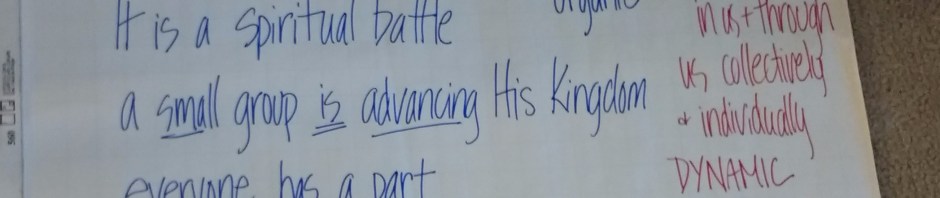 It is a spiritual battle
a small group is advancing His Kingdom
everyone has a part
organic
in us + through
us collectively
+ individually
DYNAMIC